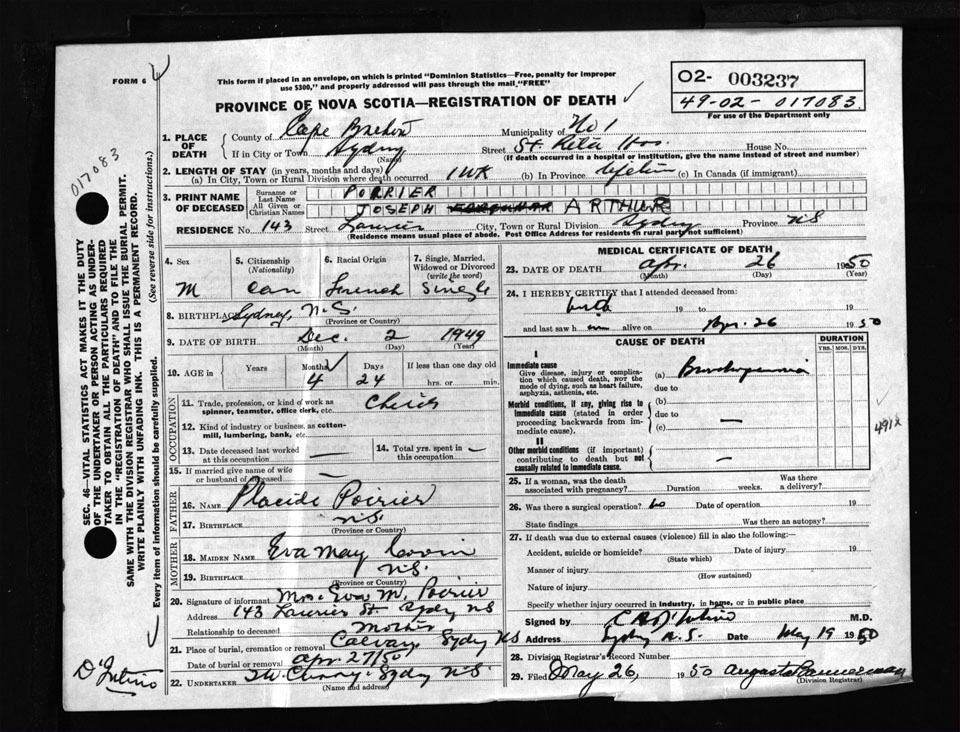 FORM 6
This form if placed in an envelope, on which is printed "Dominion Statistics—Free, penalty for improper
use $300," and properly addressed will pass through the mail "FREE"
PROVINCE OF NOVA SCOTIA—REGISTRATION OF DEATH
02- 003237
49-02-017083
For use of the Department only
017083
1. PLACE OF DEATH
County of Cape Breton Municipality of No 1
If in City or Town Sydney (Name) Street St. Rita Hos. House No.
(If death occurred in a hospital or institution, give the name instead of street and number)
2. LENGTH OF STAY (in years, months and days)
(a) In City, Town or Rural Division where death occurred 1 WK (b) In Province Lifetime (c) In Canada (if immigrant)
3. PRINT NAME OF DECEASED
Surname or Last Name PORRIER
All Given or Christian Names JOSEPH ARTHUR
RESIDENCE No. 143 Street Laurier City, Town or Rural Division Sydney Province NS
(Residence means usual place of abode. Post Office Address for residents in rural parts not sufficient)
4. Sex M
5. Citizenship (Nationality) Can
6. Racial Origin French
7. Single, Married, Widowed or Divorced (write the word) Single
8. BIRTHPLACE Sydney, N.S.
(Province or Country)
9. DATE OF BIRTH Dec. 2 1949
(Month) (Day) (Year)
10. AGE in Years Months 4 Days 24 If less than one day old hrs. or min.
OCCUPATION
11. Trade, profession, or kind of work as spinner, teamster, office clerk, etc. Child
12. Kind of industry or business, as cotton-mill, lumbering, bank, etc.
13. Date deceased last worked at this occupation —
14. Total yrs. spent in this occupation —
15. If married give name of wife or husband of deceased —
FATHER
16. NAME Placide Poirier
17. BIRTHPLACE NS
(Province or Country)
MOTHER
18. MAIDEN NAME Eva May
19. BIRTHPLACE NS
(Province or Country)
20. Signature of informant Mrs. Eva M. Poirier
Address 143 Laurier St Sydney NS
Relationship to deceased Mother
21. Place of burial, cremation or removal Calvary Sydney NS
Date of burial or removal Apr 27/50
22. UNDERTAKER Sydney NS
(Name and address)
MEDICAL CERTIFICATE OF DEATH
23. DATE OF DEATH Apr. 26 1950
(Month) (Day) (Year)
24. I HEREBY CERTIFY that I attended deceased from
birth 19 to 19
and last saw him alive on Apr. 26 1950
CAUSE OF DEATH
DURATION
YRS. MOS. DYS.
I
Immediate cause
Give disease, injury or complication which caused death, not the mode of dying, such as heart failure, asphyxia, asthenia, etc.
(a) Bronchopneumonia
due to
Morbid conditions, if any, giving rise to immediate cause (stated in order proceeding backwards from immediate cause).
(b)
due to
(c) —
II
Other morbid conditions (if important) contributing to death but not causally related to immediate cause.
—
491x
25. If a woman, was the death associated with pregnancy? Duration weeks. Was there a delivery?
26. Was there a surgical operation? No Date of operation 19
State findings Was there an autopsy?
27. If death was due to external causes (violence) fill in also the following:—
Accident, suicide or homicide? Date of injury 19
(State which)
Manner of injury
(How sustained)
Nature of injury
Specify whether injury occurred in industry, in home, or in public place
Signed by M.D.
Address Sydney N.S. Date May 19 1950
28. Division Registrar's Record Number
29. Filed May 26, 1950 Augusta Bannerman
(Division Registrar)
SEC. 46—VITAL STATISTICS ACT MAKES IT THE DUTY
OF THE UNDERTAKER OR PERSON ACTING AS UNDER-
TAKER TO OBTAIN ALL THE PARTICULARS REQUIRED
IN THE "REGISTRATION OF DEATH" AND TO FILE THE
SAME WITH THE DIVISION REGISTRAR WHO SHALL ISSUE THE BURIAL PERMIT.
WRITE PLAINLY WITH UNFADING INK. THIS IS A PERMANENT RECORD.
Every item of Information should be carefully supplied. (See reverse side for instructions.)